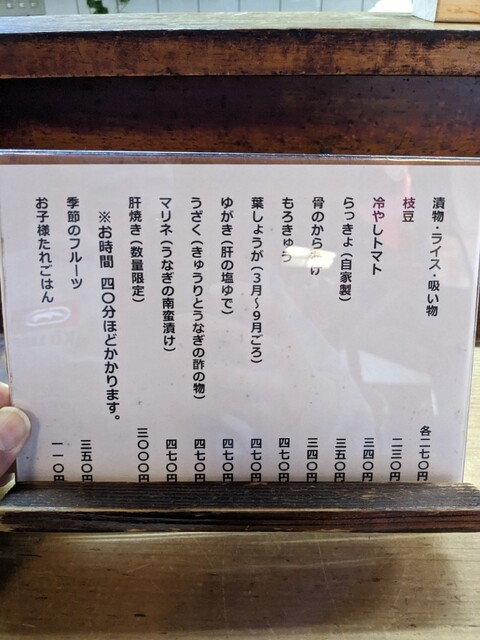 漬物・ライス・吸い物 各二七〇円
枝豆 二三〇円
冷やしトマト 三四〇円
らっきょ（自家製） 三五〇円
骨のからあげ 三四〇円
もろきゅう 四七〇円
葉しょうが（3月～9月ごろ） 四七〇円
ゆがき（肝の塩ゆで） 四七〇円
うざく（きゅうりとうなぎの酢の物） 四七〇円
マリネ（うなぎの南蛮漬け） 四七〇円
肝焼き（数量限定） 三〇〇〇円
※お時間 四〇分ほどかかります。
季節のフルーツ 三五〇円
お子様たれごはん 一一〇円